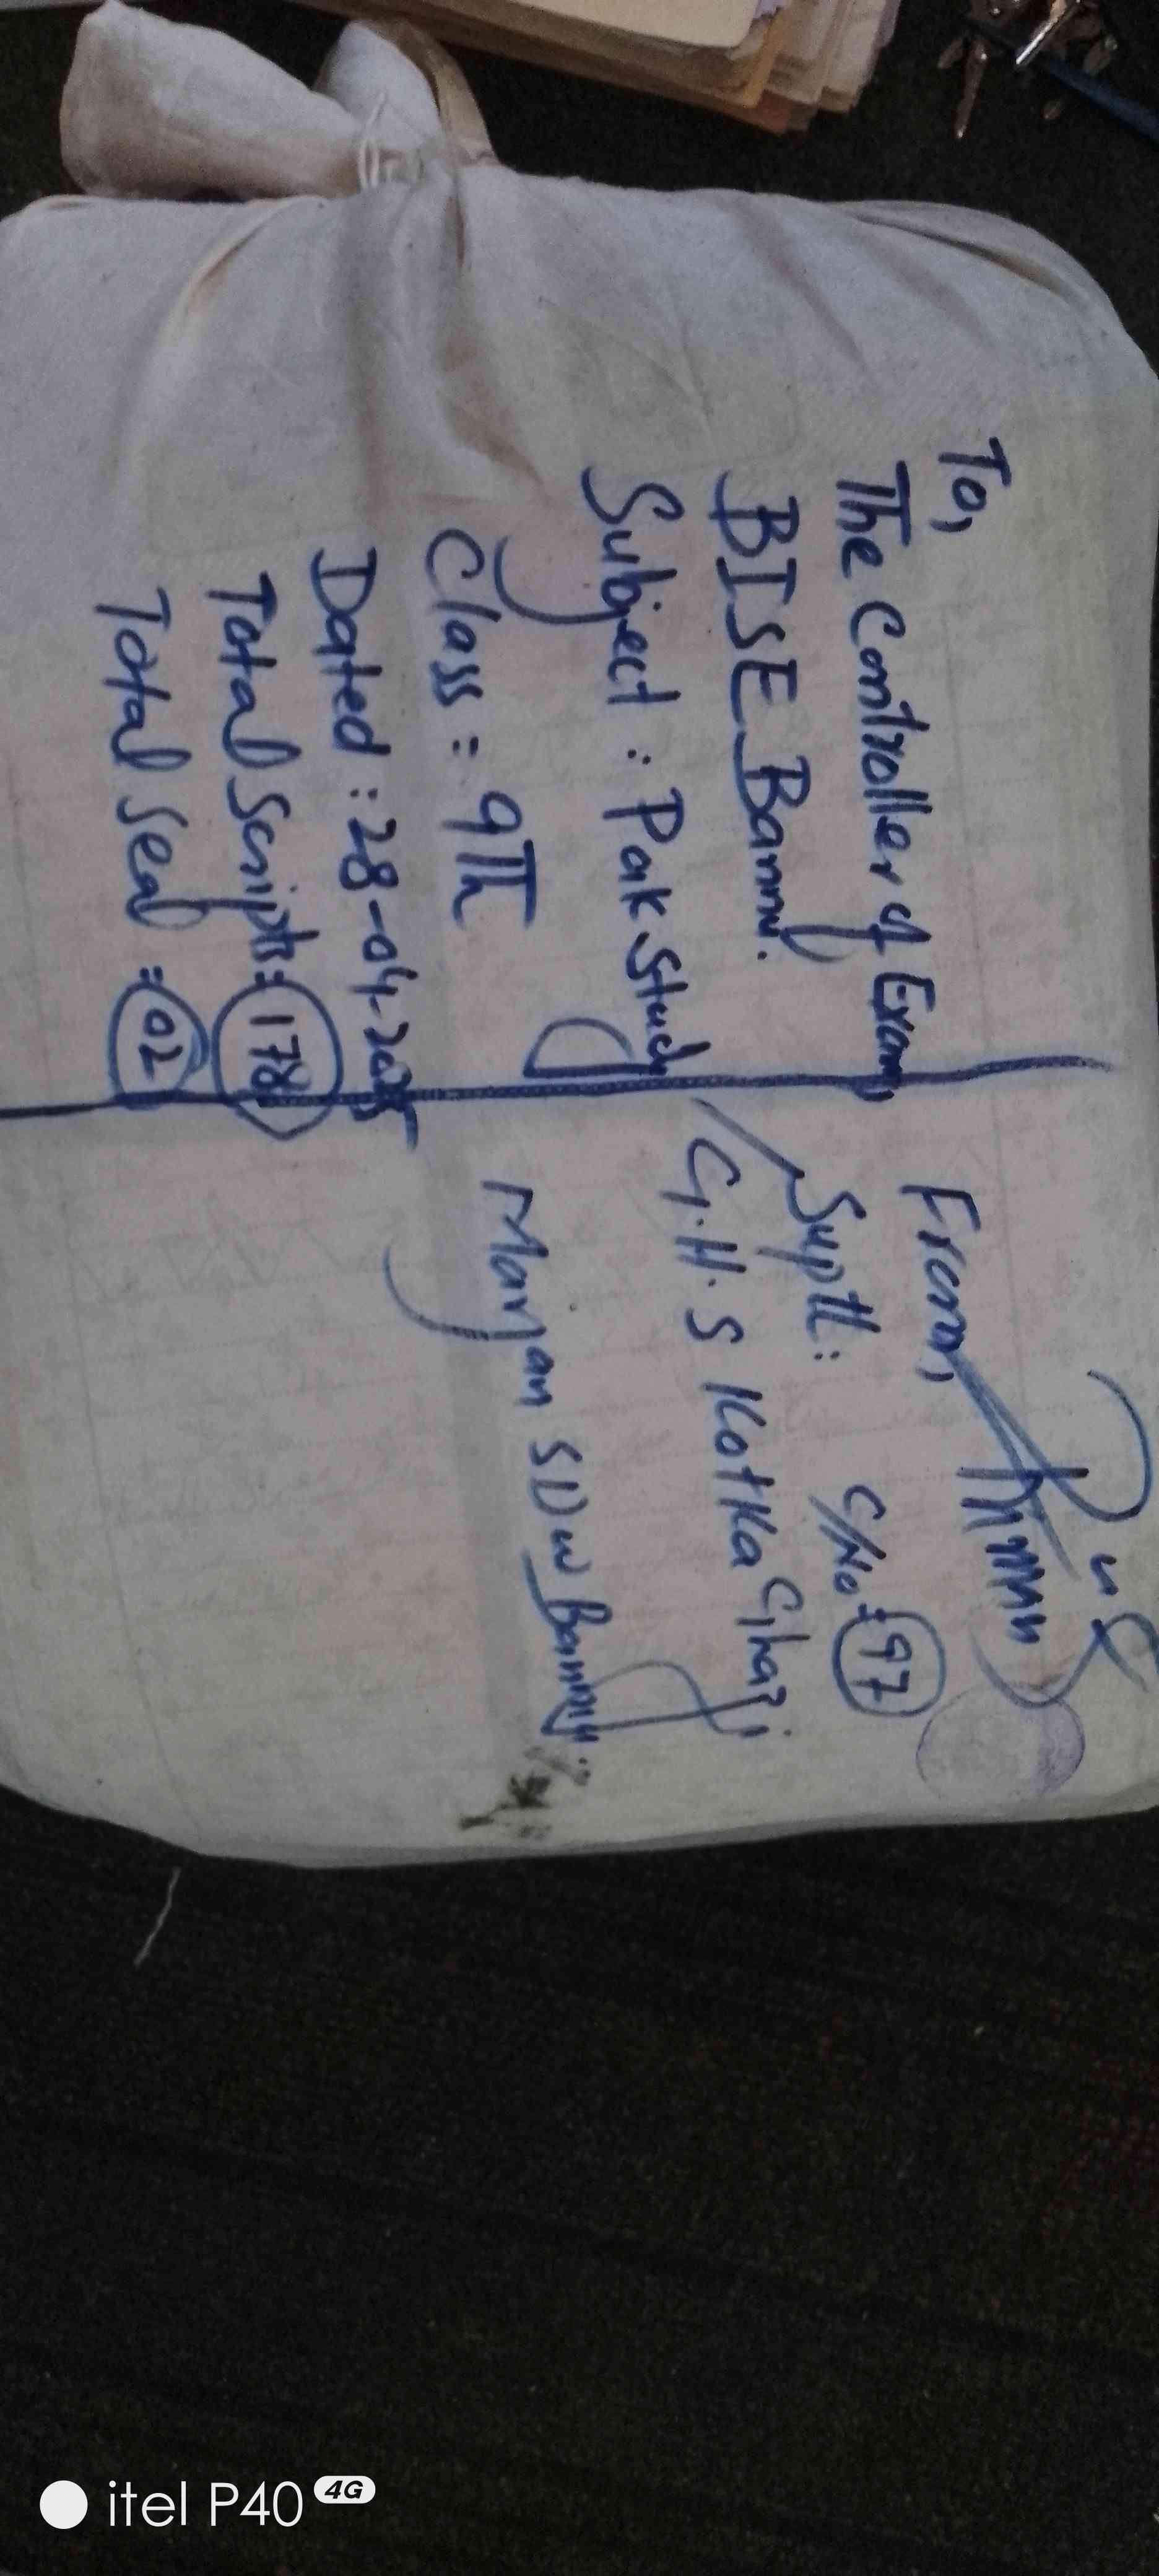 To,
The Controller of Exam,
BISE Bannu.
Subject : Pak Study
Class = 9Th
Dated : 28-04-2025
Total Scripts = 178
Total Seal = 02
From,
Suptt: C/No = 97
G.H.S Kotka Ghazi
Marjan SDW Bannu
itel P40 4G